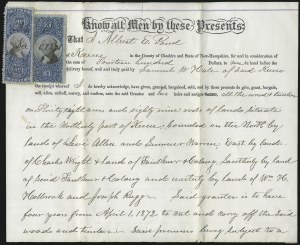 Know all Men by these Presents:
That I Albert E. Hurd
of Keene in the County of Cheshire and State of New-Hampshire, for and in consideration of
the sum of Fourteen hundred Dollars, to me in hand before the
delivery hereof, well and truly paid by Samuel W. Hale of said Keene
do hereby acknowledge, have given, granted, bargained, sold, and by these presents do give, grant, bargain,
sell, alien, enfeoff, convey and confirm, unto the said Grantee and his heirs and assigns forever, all the wood & timber
on Thirty eight acres and eighty nine rods of land situate
in the Northerly part of Keene, bounded on the North by
lands of Allen and Sumner Warren, East by land
of Charles Wright & land of Faulkner & Colony, Southerly by land
of said Faulkner & Colony and westerly by land of Wm. H.
and Joseph Said grantee is to have
four years from April 1, 1872 to cut and carry off the said
wood and timber. Said premises being subject to a